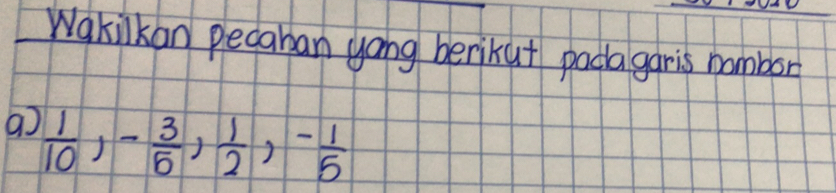 Wakilkan pecahan yang berikut pada garis nombor
a) 1/10, -3/5, 1/2, -1/5